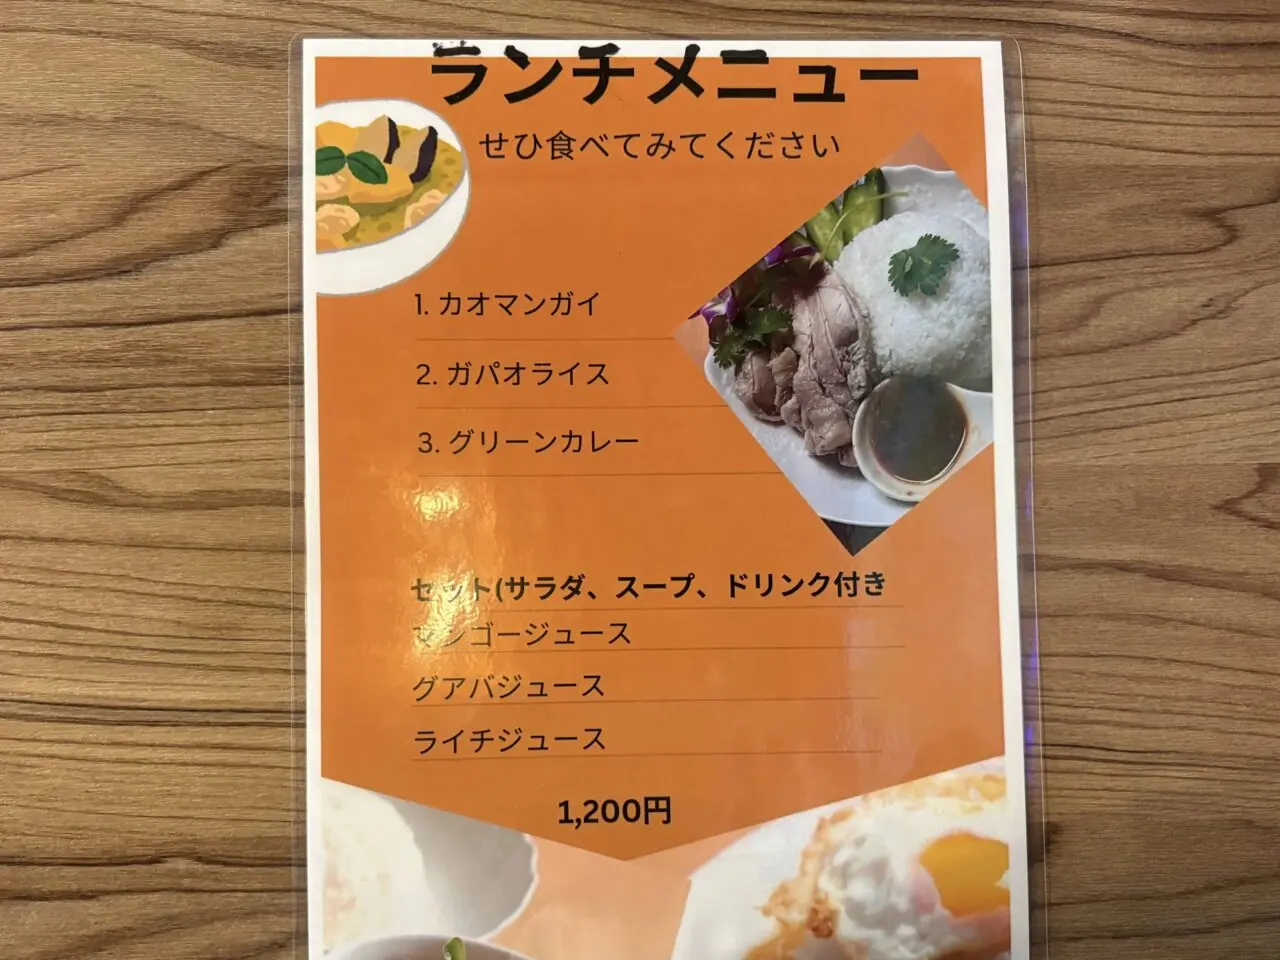 ランチメニュー
せひ食べてみてください
1. カオマンガイ
2. ガパオライス
3. グリーンカレー
セット(サラダ、スープ、ドリンク付き
マンゴージュース
グアバジュース
ライチジュース
1,200円